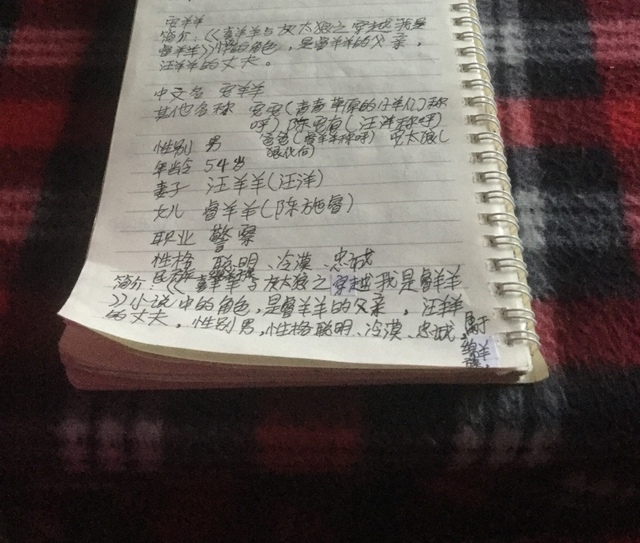 羊羊
简介:《喜羊羊与灰太狼之穿越我是
睿羊羊》里的角色,是睿羊羊的父亲,
汪羊羊的丈夫。
中文名 羊羊
其他名称 (青青草原的小羊们称
呼)陈(汪洋称呼)
性别 男 爸爸(睿羊羊称呼) 太狼(
狼化后)
年龄 54岁
妻子 汪羊羊(汪洋)
女儿 睿羊羊(陈施睿)
职业 警察
性格 聪明、冷漠、忠诚
简介:《喜羊羊与灰太狼之穿越我是睿羊羊
》小说中的角色,是睿羊羊的父亲,汪羊羊
的丈夫。性别男,性格聪明、冷漠、忠诚,属于
绵羊